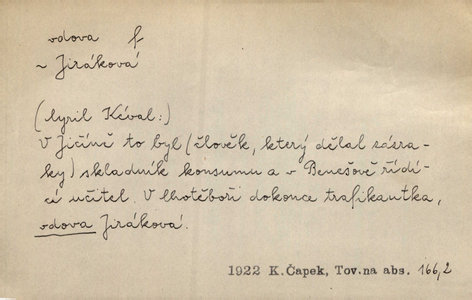 vdova f
~ Jiráková
(Cyril Kéval:)
V Jičíně to byl (člověk, který dělal zázra-
ky) skladník konsumu a v Benešově řídí-
cí učitel. V Chotěboři dokonce trafikantka,
vdova Jiráková.
1922 K.Čapek, Tov.na abs. 166,2